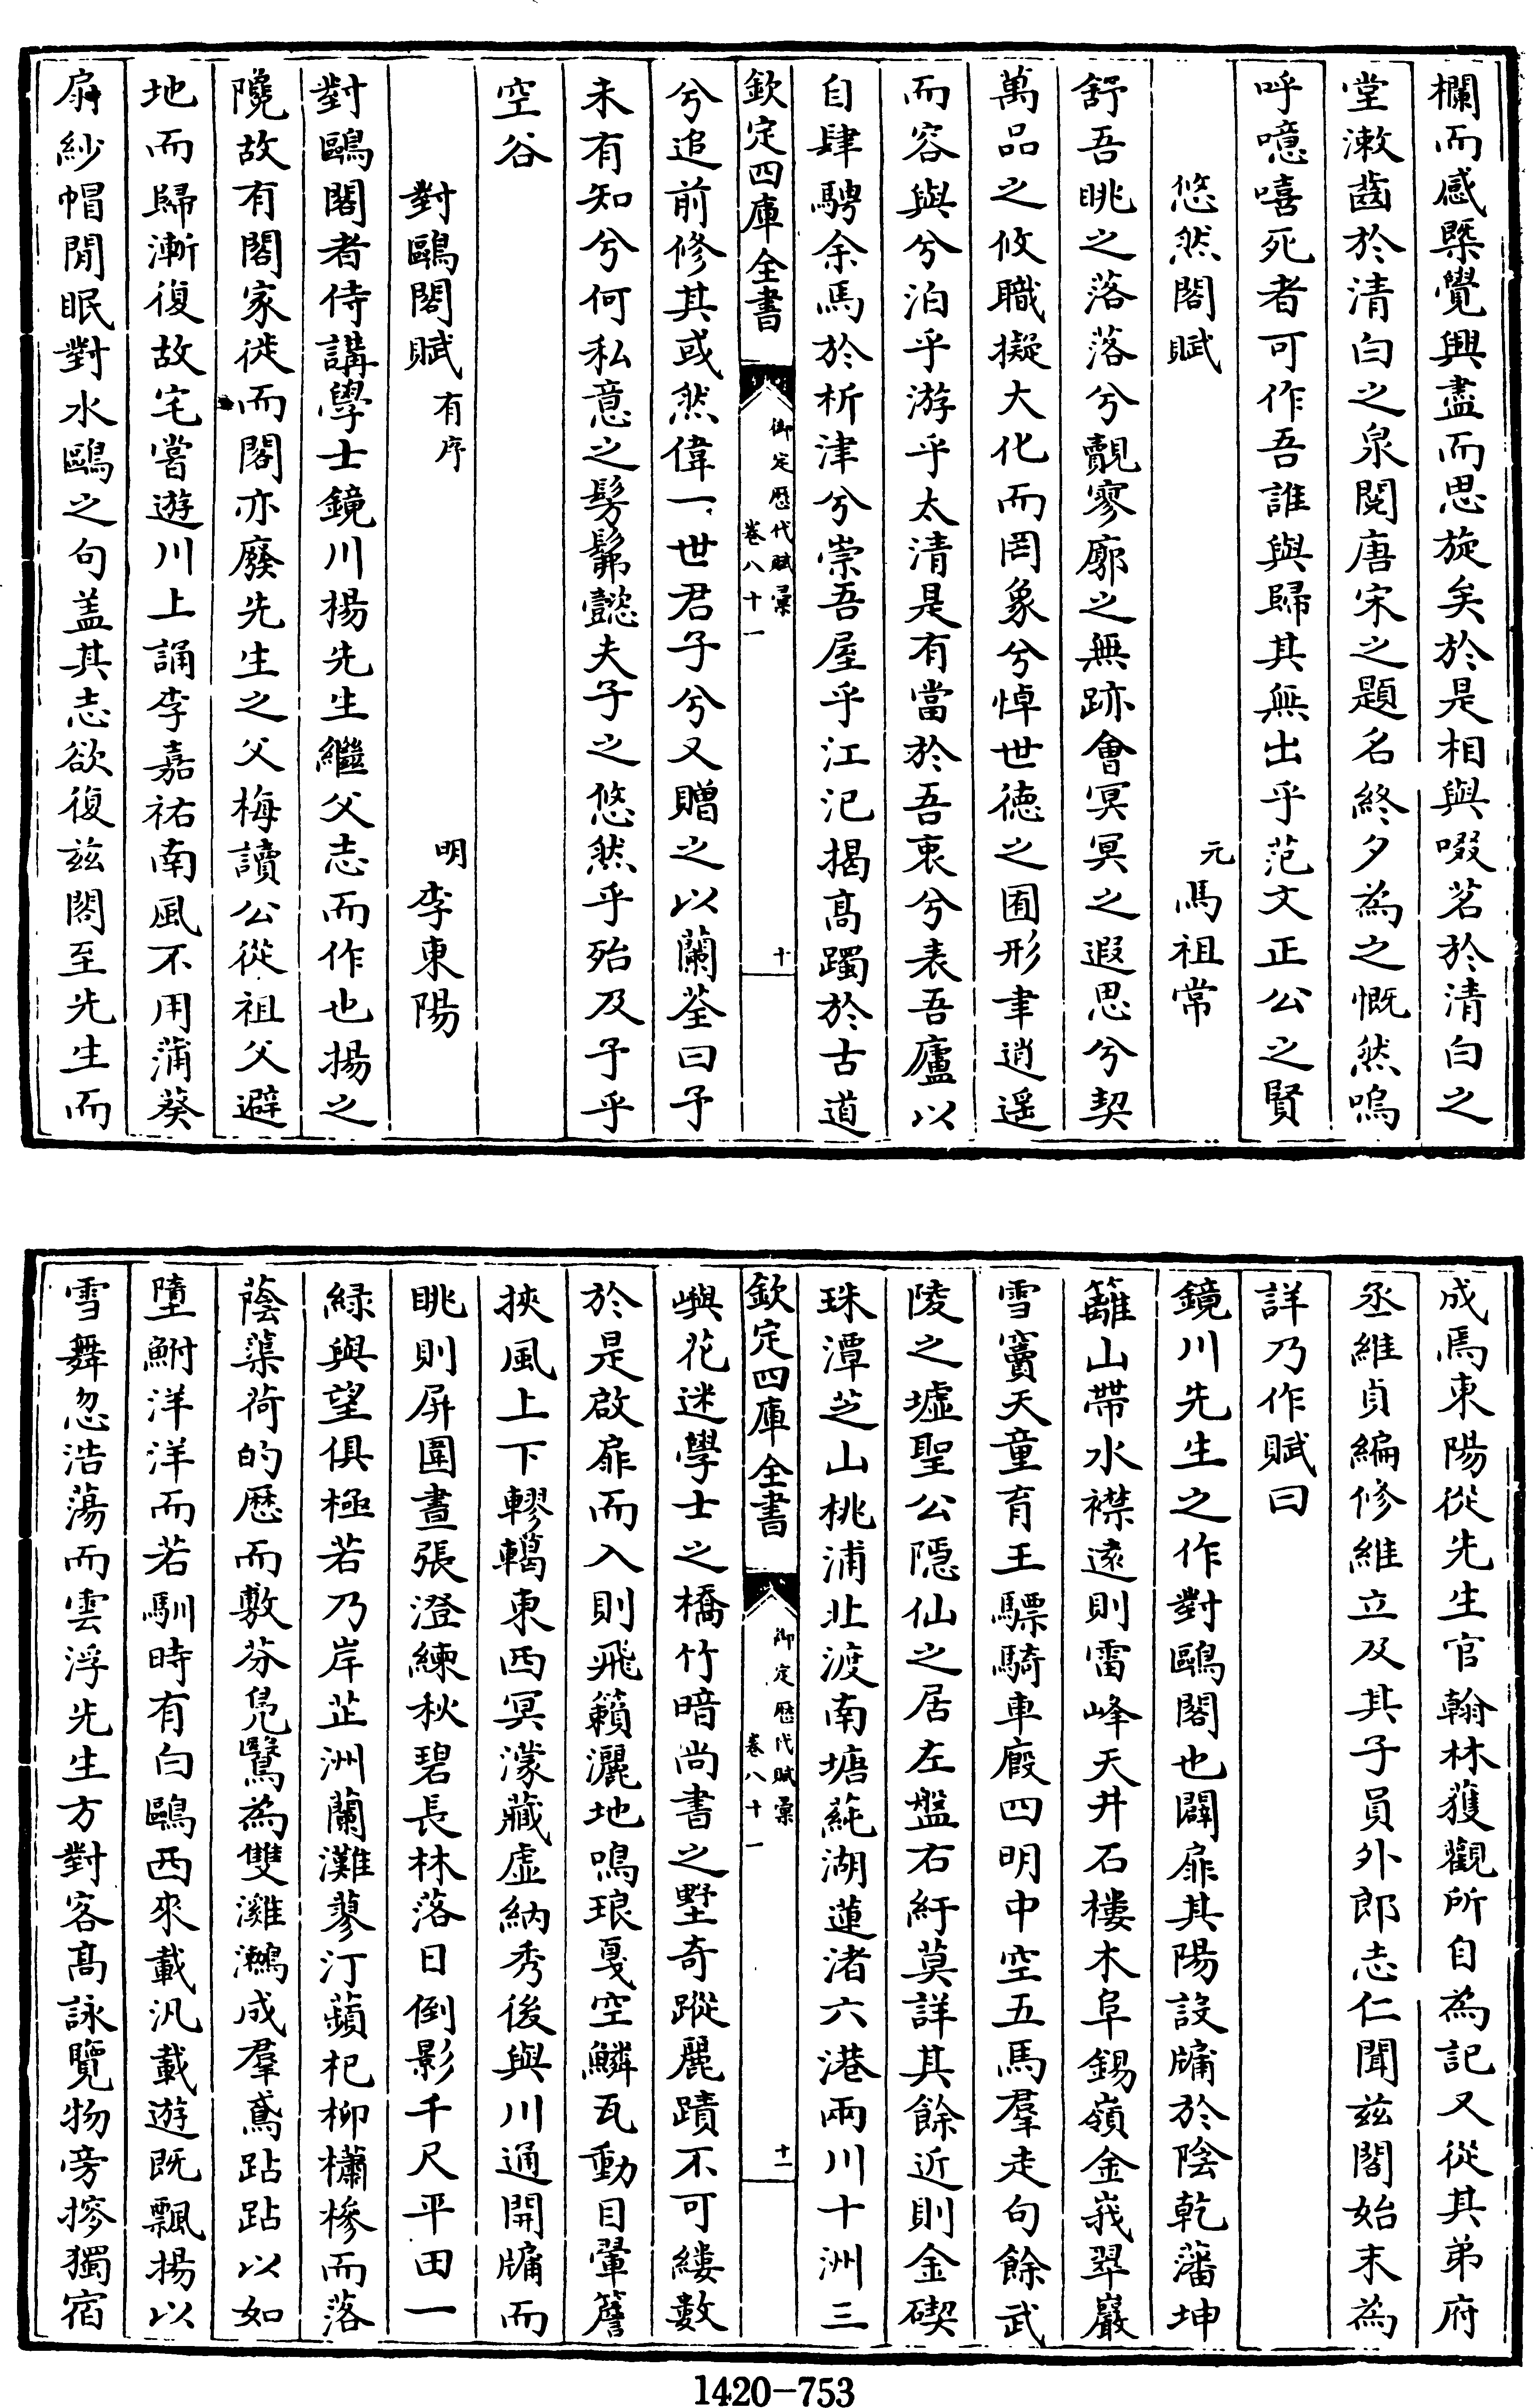 欄而感槩覺興盡而思旋矣於是相與啜茗於清白之
堂漱齒於清白之泉閱唐宋之題名終夕為之慨然嗚
呼噫嘻死者可作吾誰與歸其無出乎范文正公之賢
悠然閣賦 元 馬祖常
舒吾眺之落落兮覿寥廓之無跡會冥冥之遐思兮契
萬品之攸職擬大化而罔象兮悼世德之囿形聿逍遥
而容與兮泊乎游乎太清是有當於吾衷兮表吾廬以
自肆騁余馬於析津兮崇吾屋乎江汜揭高躅於古道
欽定四庫全書 御定歷代賦彙 卷八十一 十
兮追前修其或然偉一世君子兮又贈之以蘭荃曰予
未有知兮何私意之髣髴懿夫子之悠然乎殆及予乎
空谷
對鷗閣賦 有序 明 李東陽
對鷗閣者侍講學士鏡川楊先生繼父志而作也楊之
隒故有閣家徙而閣亦廢先生之父梅讀公從祖父避
地而歸漸復故宅嘗遊川上誦李嘉祐南風不用蒲葵
扇紗帽閒眠對水鷗之句盖其志欲復兹閣至先生而
成焉東陽從先生官翰林獲觀所自為記又從其弟府
丞維貞編修維立及其子員外郎志仁聞兹閣始末為
詳乃作賦曰
鏡川先生之作對鷗閣也闢扉其陽設牖於陰乾藩坤
籬山帶水襟遠則雷峰天井石樓木阜錫嶺金峩翠巖
雪竇天童育王驃騎車廄四明中空五馬羣走句餘武
陵之墟聖公隱仙之居左盤右紆莫詳其餘近則金碶
珠潭芝山桃浦北渡南塘蒓湖蓮渚六港兩川十洲三
欽定四庫全書 御定歷代賦彙 卷八十一 十一
嶼花迷學士之橋竹暗尚書之墅奇蹤麗蹟不可縷數
於是啟扉而入則飛籟灑地鳴琅戛空鱗瓦動目翬簷
挾風上下轇轕東西冥濛藏虛納秀後與川通開牖而
眺則屏圍晝張澄練秋碧長林落日倒影千尺平田一
緑與望俱極若乃岸芷洲蘭灘蓼汀蘋杞柳櫹槮而落
蔭蕖荷的歷而敷芬鳬鷖為雙㶉鶒成羣鳶跕跕以如
墮鮒洋洋而若馴時有白鷗西來載汎載遊既飄揚以
雪舞忽浩蕩而雲浮先生方對客高詠覽物旁摉獨宿
1420-753